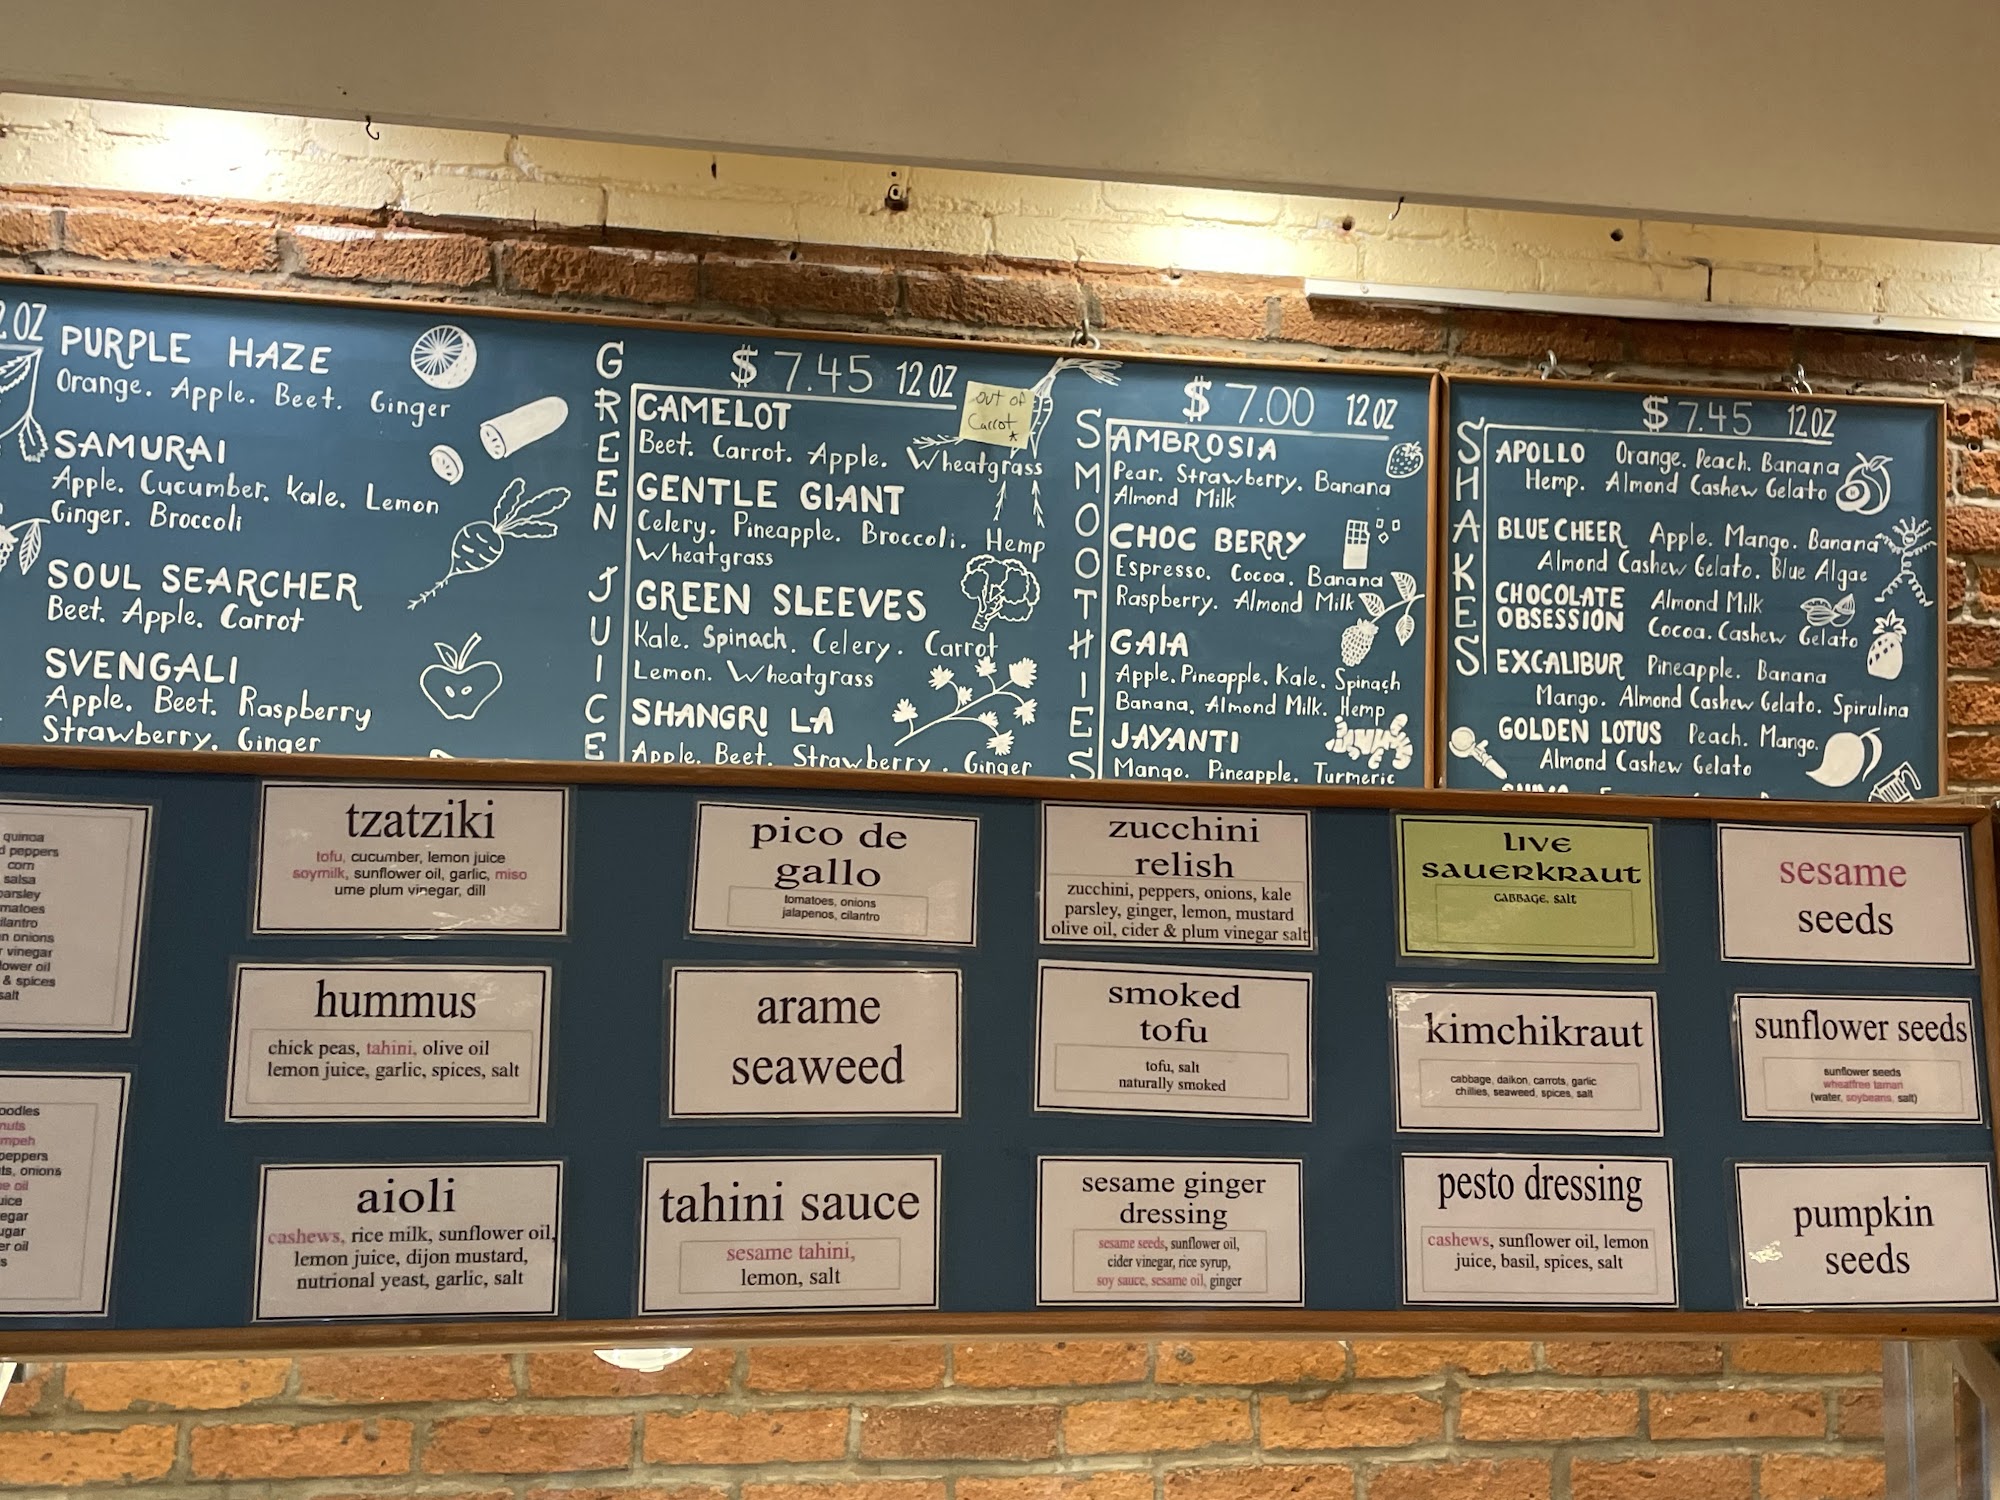 PURPLE HAZE
Orange. Apple. Beet. Ginger
SAMURAI
Apple. Cucumber. Kale. Lemon
Ginger. Broccoli
SOUL SEARCHER
Beet. Apple. Carrot
SVENGALI
Apple. Beet. Raspberry
Strawberry. Ginger
GREEN JUICE
$ 7.45 12 OZ
out of
Carrot
*
CAMELOT
Beet. Carrot. Apple. Wheatgrass
GENTLE GIANT
Celery. Pineapple. Broccoli. Hemp
Wheatgrass
GREEN SLEEVES
Kale. Spinach. Celery. Carrot
Lemon. Wheatgrass
SHANGRI LA
Apple. Beet. Strawberry. Ginger
SMOOTHIES
$ 7.00 12 OZ
AMBROSIA
Pear. Strawberry. Banana
Almond Milk
CHOC BERRY
Espresso. Cocoa. Banana
Raspberry. Almond Milk
GAIA
Apple. Pineapple. Kale. Spinach
Banana. Almond Milk. Hemp
JAYANTI
Mango. Pineapple. Turmeric
SHAKES
$ 7.45 12 OZ
APOLLO Orange. Peach. Banana
Hemp. Almond Cashew Gelato
BLUE CHEER Apple. Mango. Banana
Almond Cashew Gelato. Blue Algae
CHOCOLATE OBSESSION Almond Milk
Cocoa. Cashew Gelato
EXCALIBUR Pineapple. Banana
Mango. Almond Cashew Gelato. Spirulina
GOLDEN LOTUS Peach. Mango.
Almond Cashew Gelato
quinoa
peppers
corn
salsa
onions
vinegar
oil
& spices
salt
peppers
onions
oil
tzatziki
tofu, cucumber, lemon juice
soymilk, sunflower oil, garlic, miso
ume plum vinegar, dill
pico de
gallo
tomatoes, onions
jalapenos, cilantro
zucchini
relish
zucchini, peppers, onions, kale
parsley, ginger, lemon, mustard
olive oil, cider & plum vinegar salt
LIVE
SAUERKRAUT
CABBAGE, SALT
sesame
seeds
hummus
chick peas, tahini, olive oil
lemon juice, garlic, spices, salt
arame
seaweed
smoked
tofu
tofu, salt
naturally smoked
kimchikraut
cabbage, daikon, carrots, garlic
chillies, seaweed, spices, salt
sunflower seeds
sunflower seeds
wheatfree tamari
(water, soybeans, salt)
aioli
cashews, rice milk, sunflower oil,
lemon juice, dijon mustard,
nutrional yeast, garlic, salt
tahini sauce
sesame tahini,
lemon, salt
sesame ginger
dressing
sesame seeds, sunflower oil,
cider vinegar, rice syrup,
soy sauce, sesame oil, ginger
pesto dressing
cashews, sunflower oil, lemon
juice, basil, spices, salt
pumpkin
seeds